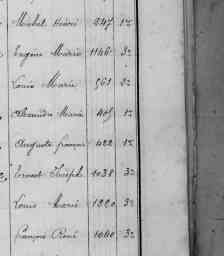 Michel Désiré 247 1re
Eugène Marie 1146 3e
Louis Marie 961 2e
Alexandre Marie 405 1re
Auguste françois 422 1re
Ernest Joseph 1038 3e
Louis René 1220 3e
françois René 1040 3e